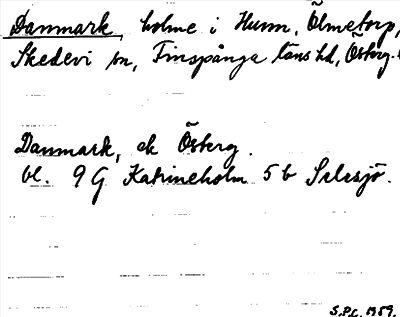 Danmark, holme i Hunn, Ölmetorp,
Skedevi sn, Finspånga läns hd, Österg.
Danmark, ek Österg.
bl. 9 G Katrineholm 5 b
S.P.L. 1959.